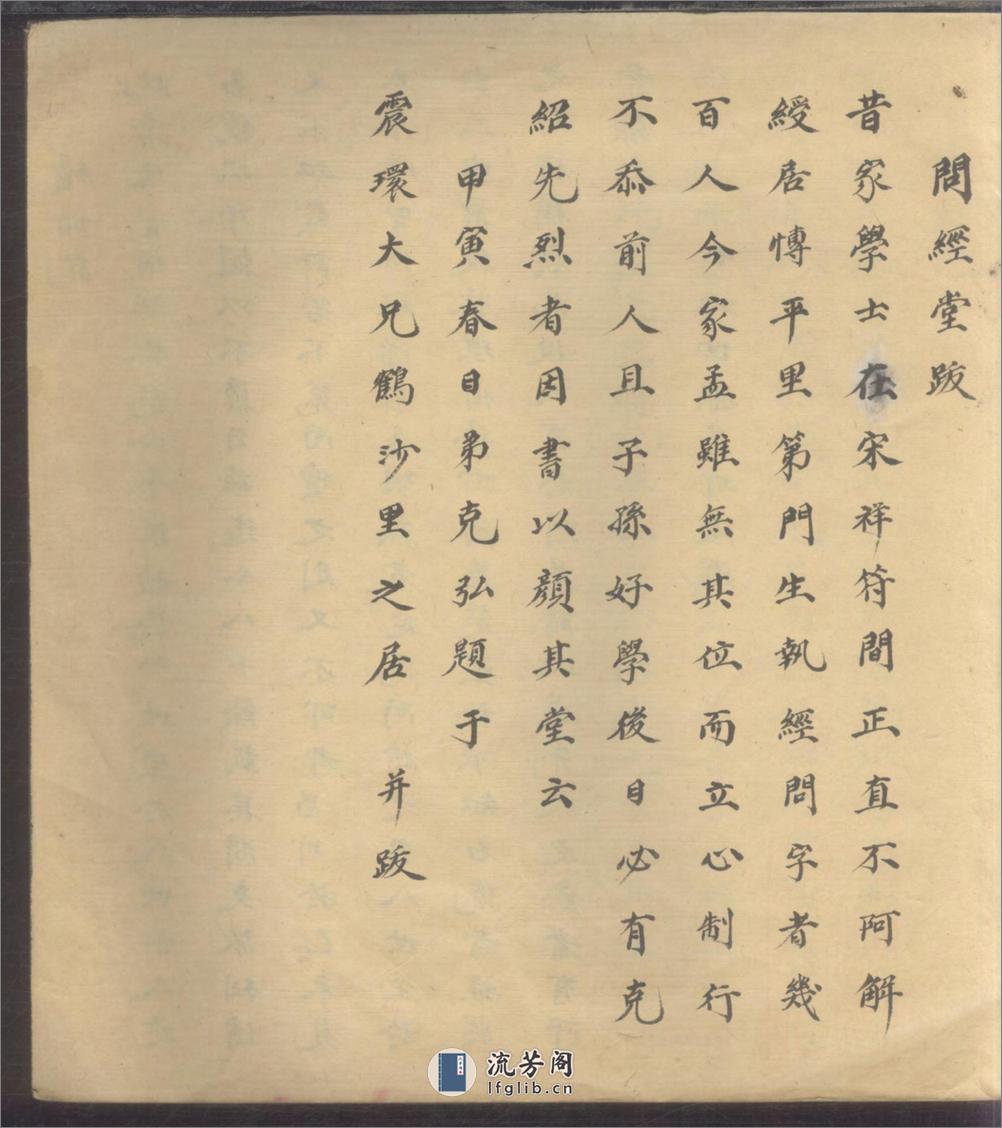 問經堂跋
昔家學士在宋祥符間正直不阿解
綬居慱平里第門生執經問字者幾
百人今家孟雖無其位而立心制行
不忝前人且子孫好學後日必有克
紹先烈者因書以顏其堂云
甲寅春日弟克弘題于
震環大兄鶴沙里之居 并跋
流芳阁
lfglib.cn